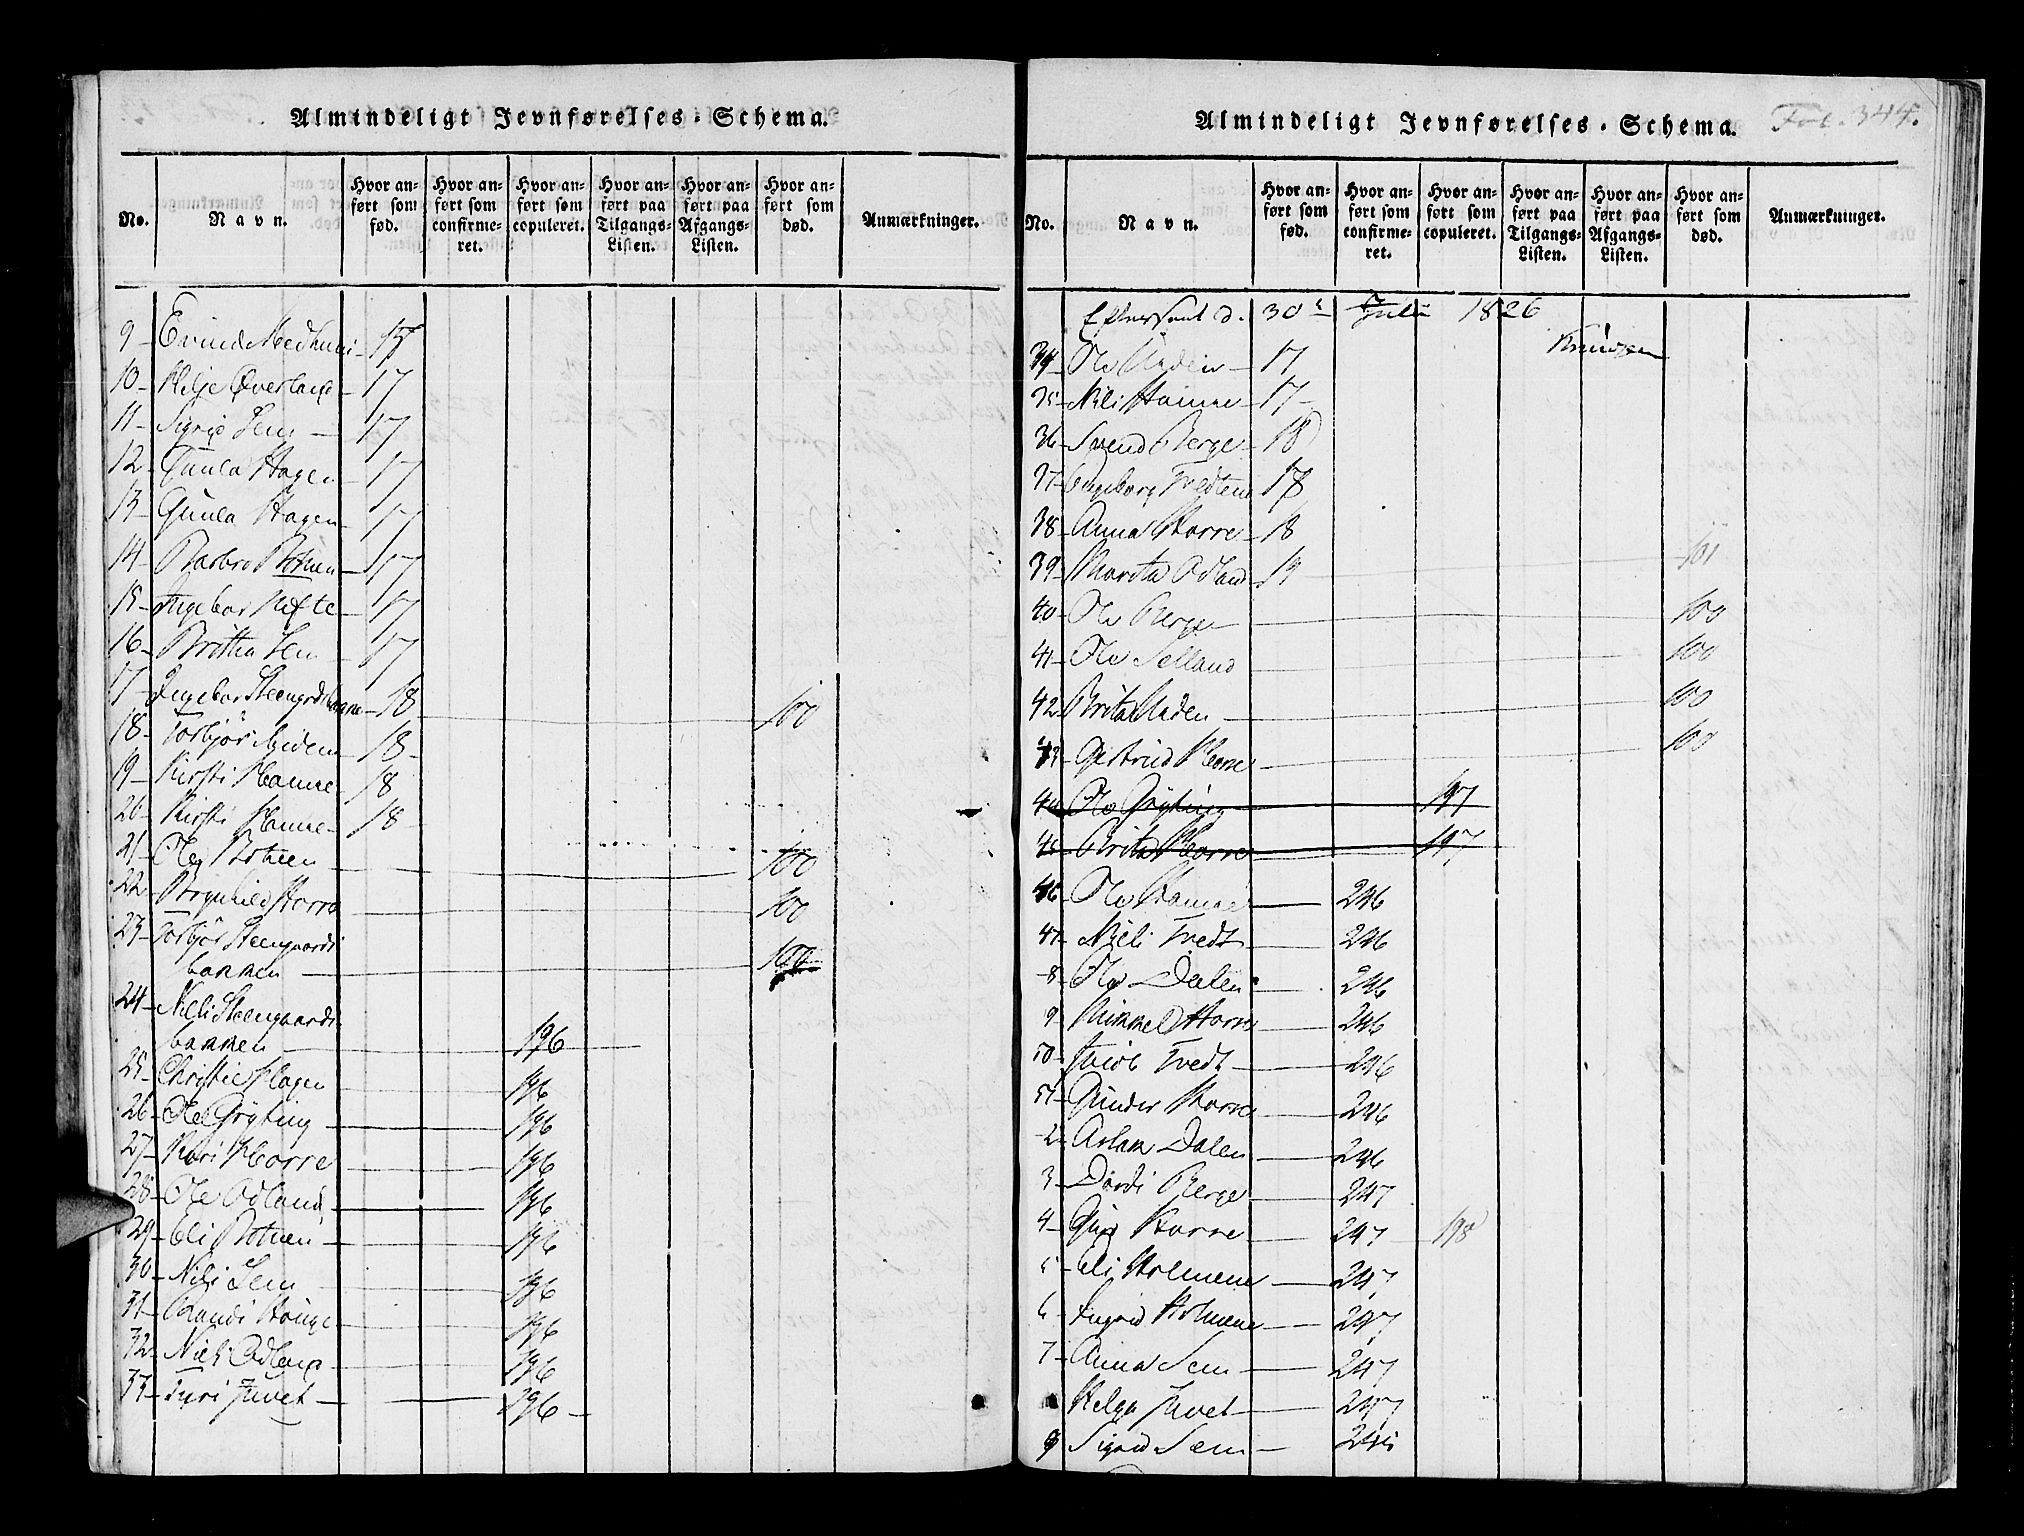 Almindeligt Jevnførelses-Schema.
No. Navn. Hvor anført som fød. Hvor anført som confirmeret. Hvor anført som copuleret. Hvor anført paa Tilgangs-Listen. Hvor anført paa Afgangs-Listen. Hvor anført som død. Anmærkninger.
9 17
10 Helje Øverland 17
11 Sigrid Sem 17
12 Gunla Hagen 17
13 Gunla Hagen 17
14 Barbro Botnen 17
15 Ingebor Tufte 17
16 Britha Sem 17
17 Ingebor 18 100
18 Torbjør 18
19 Kirsti Hamre 18
20 Kirsti Hamre 18
21 Oley Botnen 100
22 Brynhild Horre 100
23 Torbjør Steengaards
bakken 100
24 Nili Steengaards
bakken 196
25 Christie Hagen 196
26 Ole Gryting 196
27 Kari Horre 196
28 Ole Odland 196
29 Eli Botnen 196
30 Nili Sem 196
31 Randi Houge 196
32 Niels Odland 196
33 Turi Juvet 196
Almindeligt Jevnførelses-Schema. Fol. 344.
No. Navn. Hvor anført som fød. Hvor anført som confirmeret. Hvor anført som copuleret. Hvor anført paa Tilgangs-Listen. Hvor anført paa Afgangs-Listen. Hvor anført som død. Anmærkninger.
Efterseet d. 30te Julii 1826
Knudsen
34 Ole 17
35 Nili Hamre 17
36 Svend Berge 18
37 Ingeborg Tvedten 18
38 Anna Horre 18
39 Marita Odland 19 101
40 Ole Berge 100
41 Ole Selland 100
42 Brita 100
43 Gertrud Horre 100
44 Ole Gryting 197
45 Brita Horre 197
46 Ole Hamre 246
47 Nieli Tvedt 246
8 Ole Dalen 246
9 Mikkel Horre 246
50 Jacob Tvedt 246
51 Gunder Horre 246
2 Aslak Dalen 246
3 Dordi Berge 247
4 Guri Horre 247 198
5 Eli Holmene 247
6 Ingrid Holmene 247
7 Anna Sem 247
Helga Juvet 247
9 Sigrid Sem